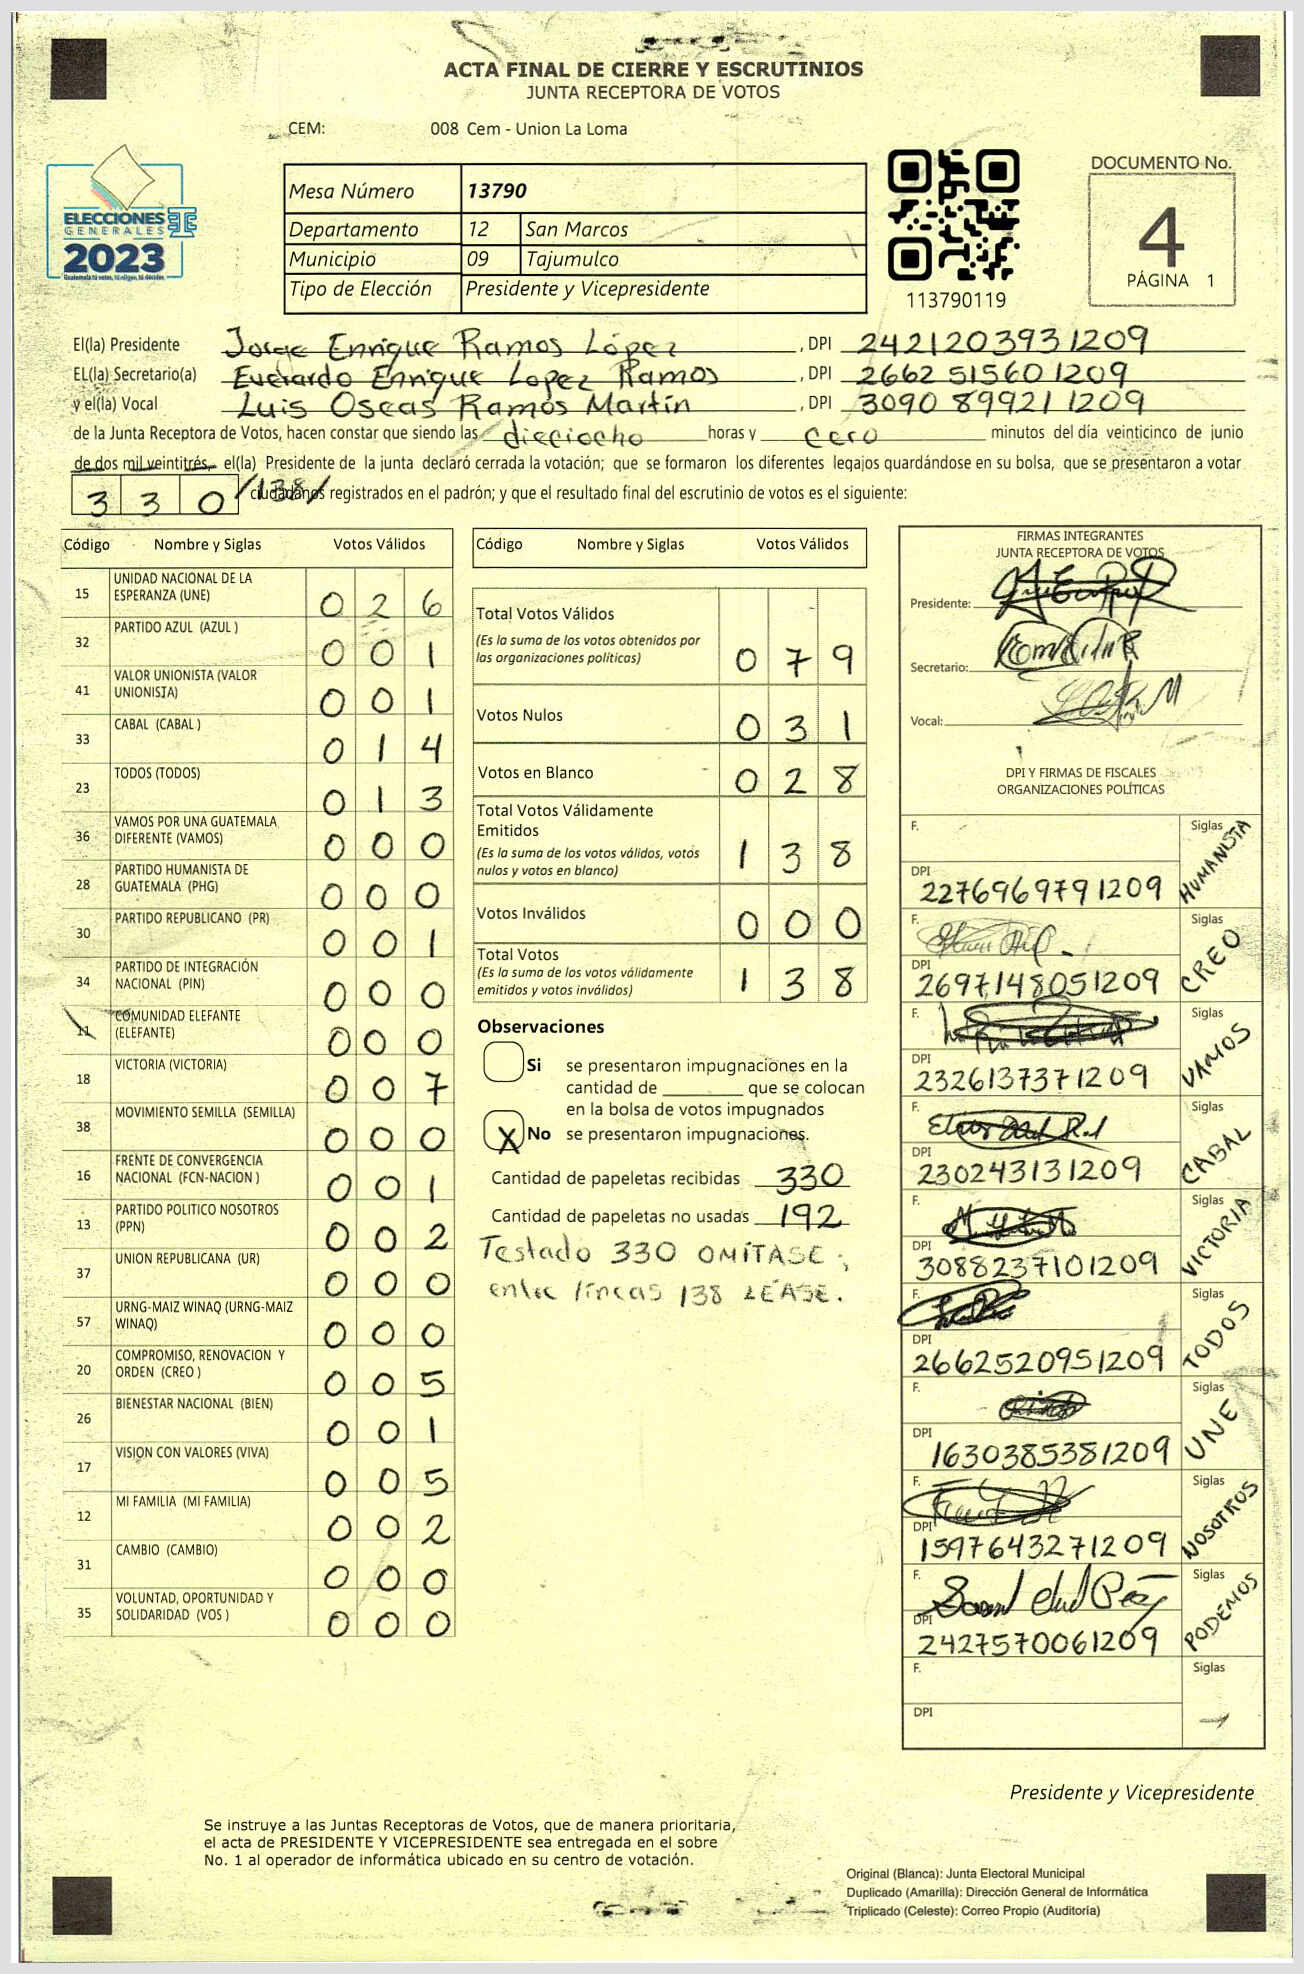 ACTA FINAL DE CIERRE Y ESCRUTINIOS
JUNTA RECEPTORA DE VOTOS
CEM: 008 Cem - Union La Loma
ELECCIONES
GENERALES
2023
Guatemala tú votas, tú eliges, tú decides
Mesa Número 13790
Departamento 12 San Marcos
Municipio 09 Tajumulco
Tipo de Elección Presidente y Vicepresidente
113790119
DOCUMENTO No.
4
PÁGINA 1
El(la) Presidente Jorge Enrique Ramos López , DPI 2421203931209
EL(la) Secretario(a) Everardo Enrique Lopez Ramos , DPI 2662 51560 1209
y el(la) Vocal Luis Oseas Ramos Martín , DPI 3090 89921 1209
de la Junta Receptora de Votos, hacen constar que siendo las dieciocho horas y cero minutos del día veinticinco de junio
de dos mil veintitrés, el(la) Presidente de la junta declaró cerrada la votación; que se formaron los diferentes legajos quardándose en su bolsa, que se presentaron a votar
330 /138/ ciudadanos registrados en el padrón; y que el resultado final del escrutinio de votos es el siguiente:
Código Nombre y Siglas Votos Válidos
15 UNIDAD NACIONAL DE LA ESPERANZA (UNE) 026
32 PARTIDO AZUL (AZUL ) 001
41 VALOR UNIONISTA (VALOR UNIONISTA) 001
33 CABAL (CABAL ) 014
23 TODOS (TODOS) 013
36 VAMOS POR UNA GUATEMALA DIFERENTE (VAMOS) 000
28 PARTIDO HUMANISTA DE GUATEMALA (PHG) 000
30 PARTIDO REPUBLICANO (PR) 001
34 PARTIDO DE INTEGRACIÓN NACIONAL (PIN) 000
11 COMUNIDAD ELEFANTE (ELEFANTE) 000
18 VICTORIA (VICTORIA) 007
38 MOVIMIENTO SEMILLA (SEMILLA) 000
16 FRENTE DE CONVERGENCIA NACIONAL (FCN-NACION ) 001
13 PARTIDO POLITICO NOSOTROS (PPN) 002
37 UNION REPUBLICANA (UR) 000
57 URNG-MAIZ WINAQ (URNG-MAIZ WINAQ) 000
20 COMPROMISO, RENOVACION Y ORDEN (CREO ) 005
26 BIENESTAR NACIONAL (BIEN) 001
17 VISION CON VALORES (VIVA) 005
12 MI FAMILIA (MI FAMILIA) 002
31 CAMBIO (CAMBIO) 000
35 VOLUNTAD, OPORTUNIDAD Y SOLIDARIDAD (VOS ) 000
Código Nombre y Siglas Votos Válidos
Total Votos Válidos 079
(Es la suma de los votos obtenidos por
las organizaciones políticas)
Votos Nulos 031
Votos en Blanco 028
Total Votos Válidamente
Emitidos 138
(Es la suma de los votos válidos, votos
nulos y votos en blanco)
Votos Inválidos 000
Total Votos 138
(Es la suma de los votos válidamente
emitidos y votos inválidos)
Observaciones
Si se presentaron impugnaciones en la
cantidad de ________ que se colocan
en la bolsa de votos impugnados
X No se presentaron impugnaciones.
Cantidad de papeletas recibidas 330
Cantidad de papeletas no usadas 192
Testado 330 OMITASE;
entre líneas 138 LÉASE.
FIRMAS INTEGRANTES
JUNTA RECEPTORA DE VOTOS
Presidente:
Secretario:
Vocal:
DPI Y FIRMAS DE FISCALES
ORGANIZACIONES POLÍTICAS
F. Siglas HUMANISTA
DPI 2276969791209
F. Siglas CREO
DPI 2697148051209
F. Siglas VAMOS
DPI 2326137371209
F. Siglas CABAL
DPI 230243131209
F. Siglas VICTORIA
DPI 3088237101209
F. Siglas TODOS
DPI 2662520951209
F. Siglas UNE
DPI 1630385381209
F. Siglas NOSOTROS
DPI 1597643271209
F. Siglas PODEMOS
DPI 2427570061209
F. Siglas
DPI
Presidente y Vicepresidente
Se instruye a las Juntas Receptoras de Votos, que de manera prioritaria,
el acta de PRESIDENTE Y VICEPRESIDENTE sea entregada en el sobre
No. 1 al operador de informática ubicado en su centro de votación.
Original (Blanca): Junta Electoral Municipal
Duplicado (Amarilla): Dirección General de Informática
Triplicado (Celeste): Correo Propio (Auditoría)